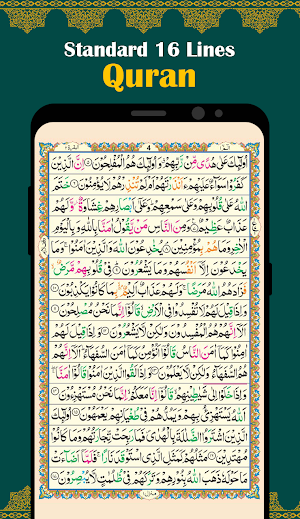 Standard 16 Lines
Quran
4
اُولٰٓئِكَ عَلٰى هُدًى مِّنْ رَّبِّهِمْ وَاُولٰٓئِكَ هُمُ الْمُفْلِحُوْنَ اِنَّ الَّذِيْنَ
كَفَرُوْا سَوَآءٌ عَلَيْهِمْ ءَاَنْذَرْتَهُمْ اَمْ لَمْ تُنْذِرْهُمْ لَا يُؤْمِنُوْنَ خَتَمَ
اللّٰهُ عَلٰى قُلُوْبِهِمْ وَعَلٰى سَمْعِهِمْ وَعَلٰٓى اَبْصَارِهِمْ غِشَاوَةٌ وَّلَهُمْ
عَذَابٌ عَظِيْمٌ وَمِنَ النَّاسِ مَنْ يَّقُوْلُ اٰمَنَّا بِاللّٰهِ وَبِالْيَوْمِ
الْاٰخِرِ وَمَا هُمْ بِمُؤْمِنِيْنَ يُخٰدِعُوْنَ اللّٰهَ وَالَّذِيْنَ اٰمَنُوْا وَمَا
يَخْدَعُوْنَ اِلَّآ اَنْفُسَهُمْ وَمَا يَشْعُرُوْنَ فِيْ قُلُوْبِهِمْ مَّرَضٌ
فَزَادَهُمُ اللّٰهُ مَرَضًا وَلَهُمْ عَذَابٌ اَلِيْمٌ بِمَا كَانُوْا يَكْذِبُوْنَ
وَاِذَا قِيْلَ لَهُمْ لَا تُفْسِدُوْا فِي الْاَرْضِ قَالُوْٓا اِنَّمَا نَحْنُ مُصْلِحُوْنَ
اَلَآ اِنَّهُمْ هُمُ الْمُفْسِدُوْنَ وَلٰكِنْ لَّا يَشْعُرُوْنَ وَاِذَا قِيْلَ لَهُمْ
اٰمِنُوْا كَمَآ اٰمَنَ النَّاسُ قَالُوْٓا اَنُؤْمِنُ كَمَآ اٰمَنَ السُّفَهَآءُ اَلَآ اِنَّهُمْ
هُمُ السُّفَهَآءُ وَلٰكِنْ لَّا يَعْلَمُوْنَ وَاِذَا لَقُوا الَّذِيْنَ اٰمَنُوْا قَالُوْٓا اٰمَنَّا
وَاِذَا خَلَوْا اِلٰى شَيٰطِيْنِهِمْ قَالُوْٓا اِنَّا مَعَكُمْ اِنَّمَا نَحْنُ مُسْتَهْزِءُوْنَ
اَللّٰهُ يَسْتَهْزِئُ بِهِمْ وَيَمُدُّهُمْ فِيْ طُغْيَانِهِمْ يَعْمَهُوْنَ اُولٰٓئِكَ
الَّذِيْنَ اشْتَرَوُا الضَّلٰلَةَ بِالْهُدٰى فَمَا رَبِحَتْ تِّجَارَتُهُمْ وَمَا كَانُوْا
مُهْتَدِيْنَ مَثَلُهُمْ كَمَثَلِ الَّذِى اسْتَوْقَدَ نَارًا فَلَمَّآ اَضَآءَتْ
مَا حَوْلَهٗ ذَهَبَ اللّٰهُ بِنُوْرِهِمْ وَتَرَكَهُمْ فِيْ ظُلُمٰتٍ لَّا يُبْصِرُوْنَ